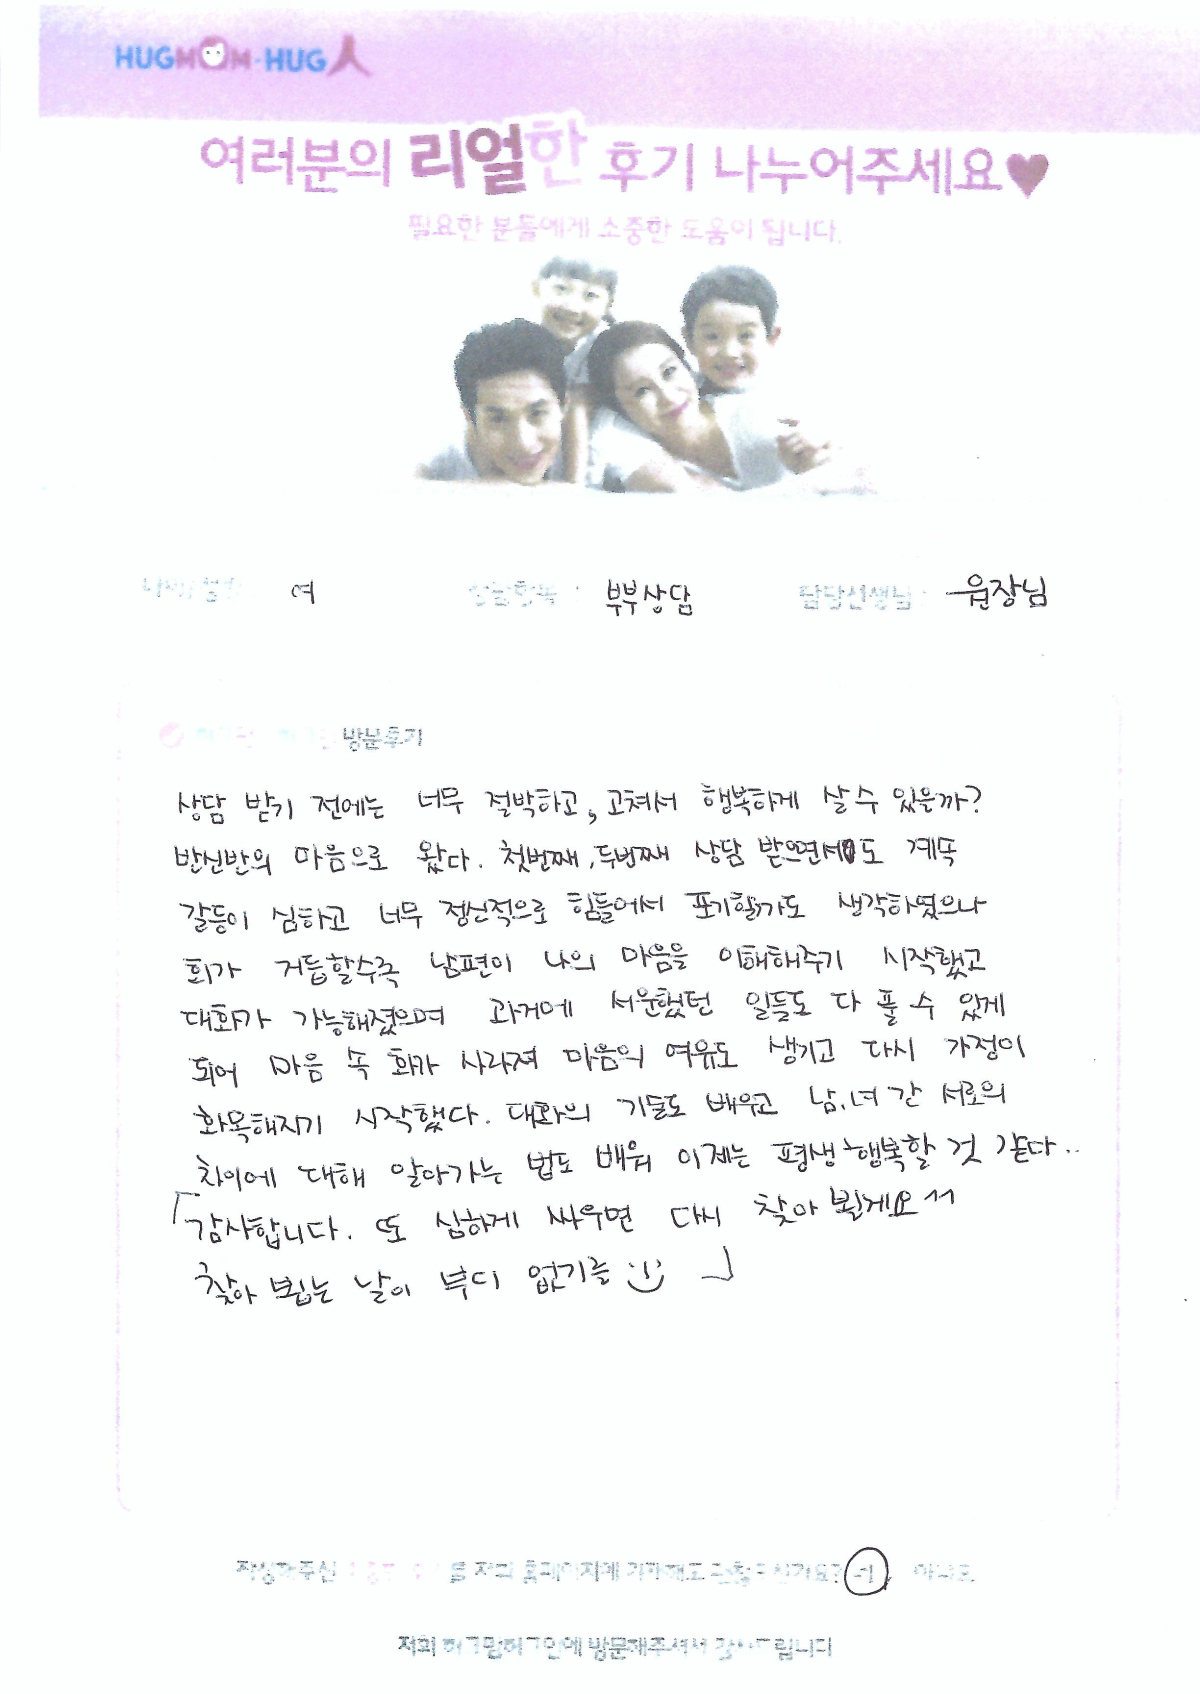 HUGMOM·HUG人
여러분의 리얼한 후기 나누어주세요♥
필요한 분들에게 소중한 도움이 됩니다.
여 부부상담 담당선생님 : 원장님
방문후기
상담 받기 전에는 너무 절박하고, 고쳐서 행복하게 살 수 있을까?
반신반의 마음으로 왔다. 첫번째, 두번째 상담 받으면서도 계속
갈등이 심하고 너무 정신적으로 힘들어서 포기할까도 생각하였으나
회가 거듭할수록 남편이 나의 마음을 이해해주기 시작했고
대화가 가능해졌으며 과거에 서운했던 일들도 다 풀 수 있게
되어 마음 속 화가 사라져 마음의 여유도 생기고 다시 가정이
화목해지기 시작했다. 대화의 기술도 배우고 남.녀 간 서로의
차이에 대해 알아가는 법도 배워 이제는 평생 행복할 것 같다..
「감사합니다. 또 심하게 싸우면 다시 찾아 뵐게요^^
찾아 뵙는 날이 부디 없기를 :) 」
작성해주신 를 저희 홈페이지에 기재해도 괜찮으신가요? 네, 아니오
저희 허그맘허그인에 방문해주셔서 감사드립니다